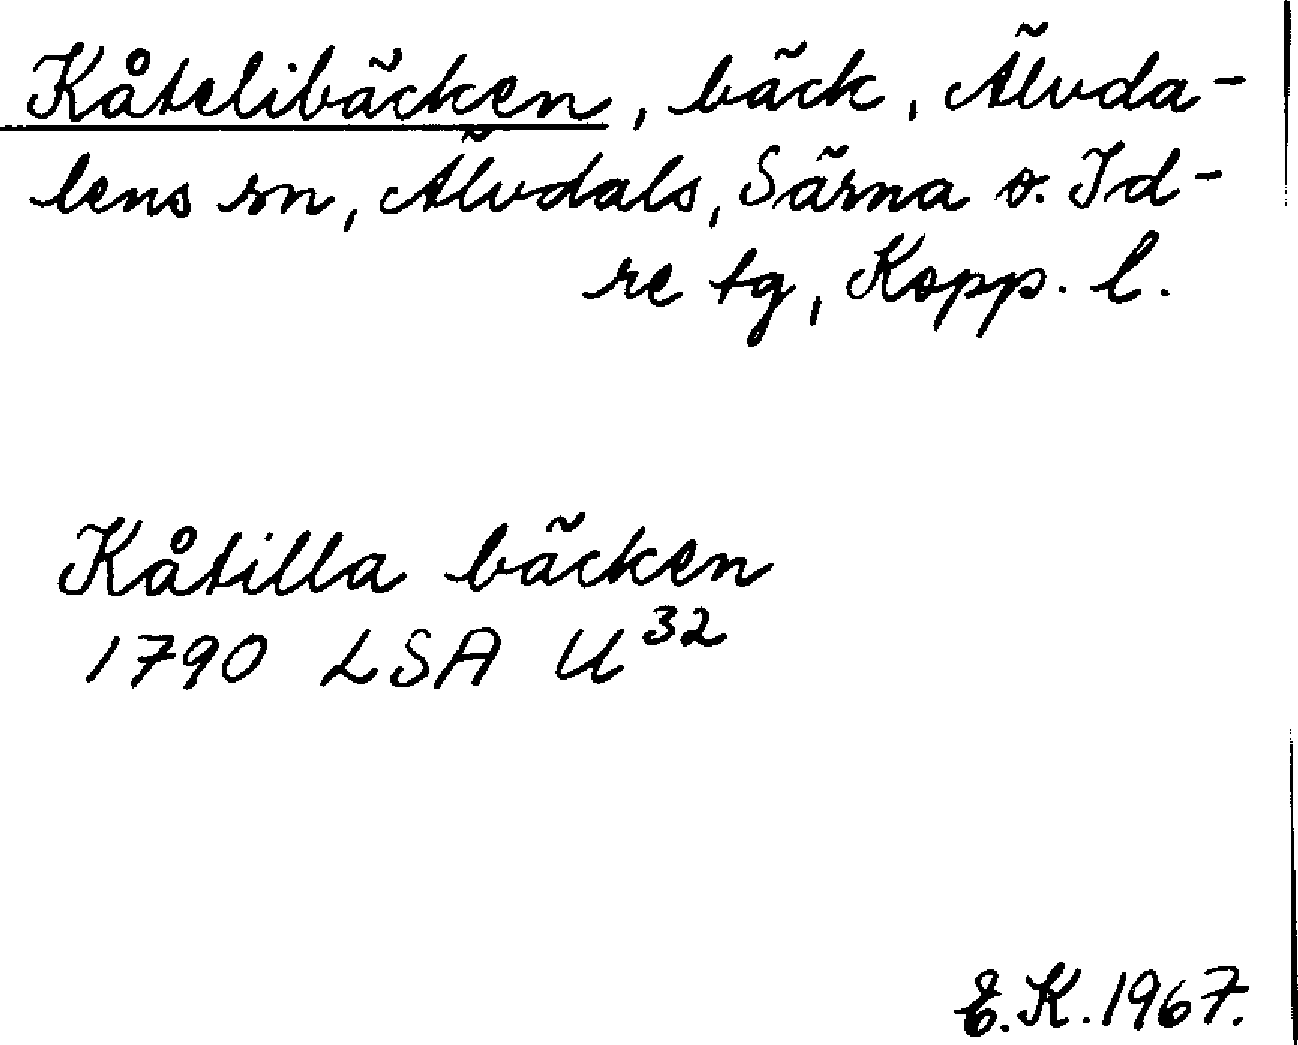 Kåtelibäcken, bäck, Älvda-
lens sn, Älvdals, Särna o. Id-
re tg, Kopp. l.
Kåtilla bäcken
1790 LSA U³²
E.K. 1967.